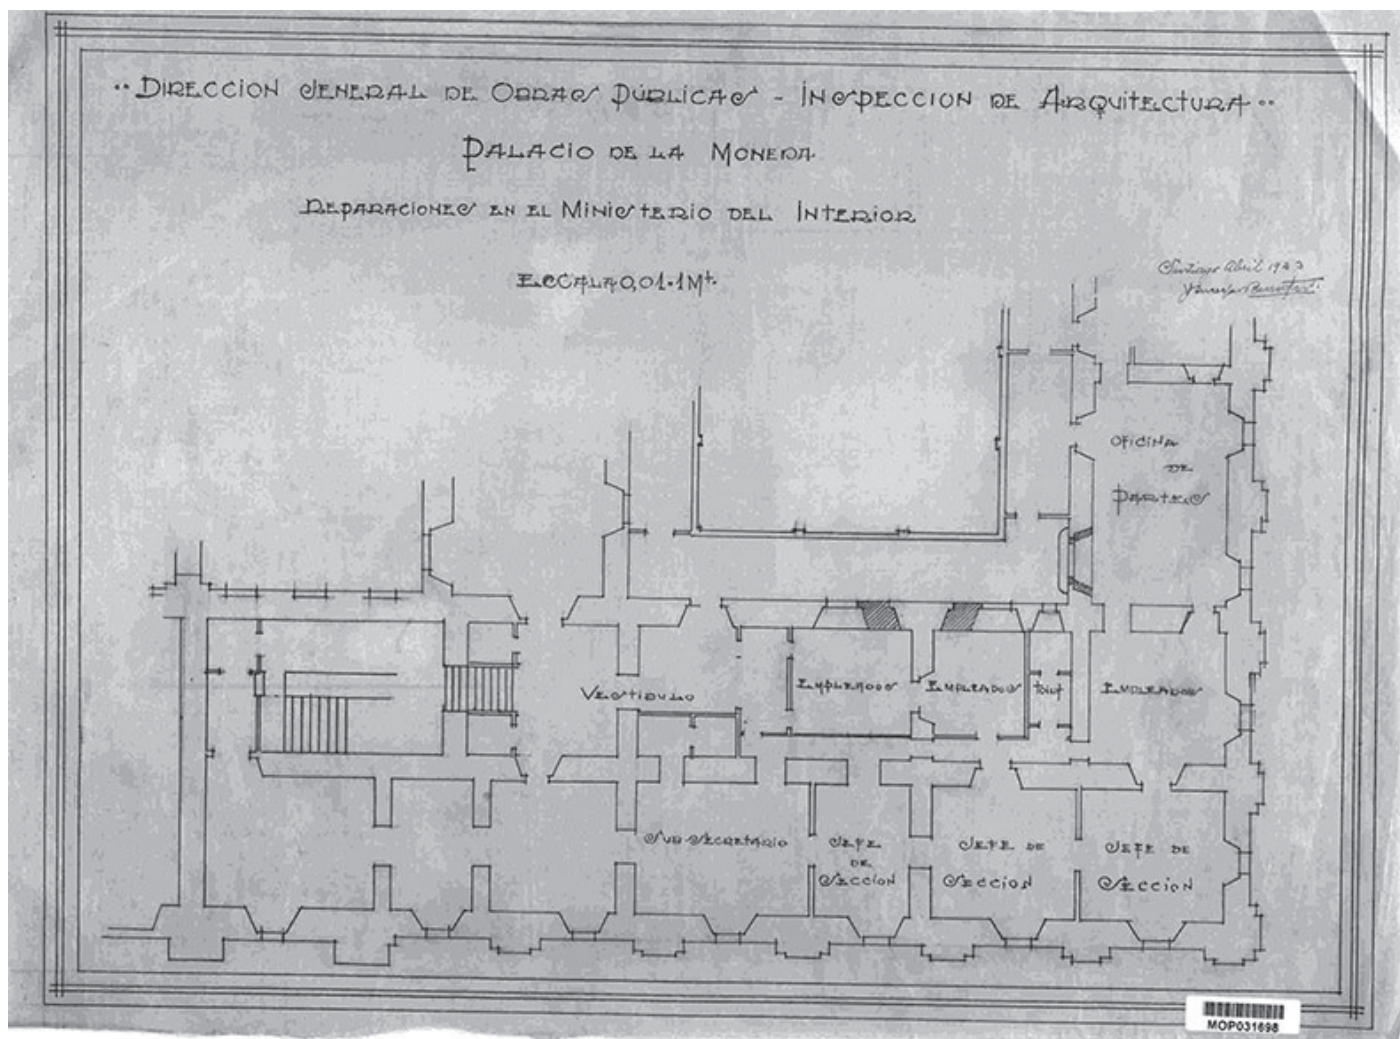 "DIRECCION GENERAL DE OBRAS PÚBLICAS - INSPECCION DE ARQUITECTURA"
PALACIO DE LA MONEDA
REPARACIONES EN EL MINISTERIO DEL INTERIOR
ESCALA 0,01·1Mt.
Santiago Abril 19
OFICINA
DE
PARTES
VESTIBULO
EMPLEADOS
EMPLEADOS
EMPLEADOS
SUB-SECRETARIO
JEFE
DE
SECCION
JEFE DE
SECCION
JEFE DE
SECCION
MOP031698